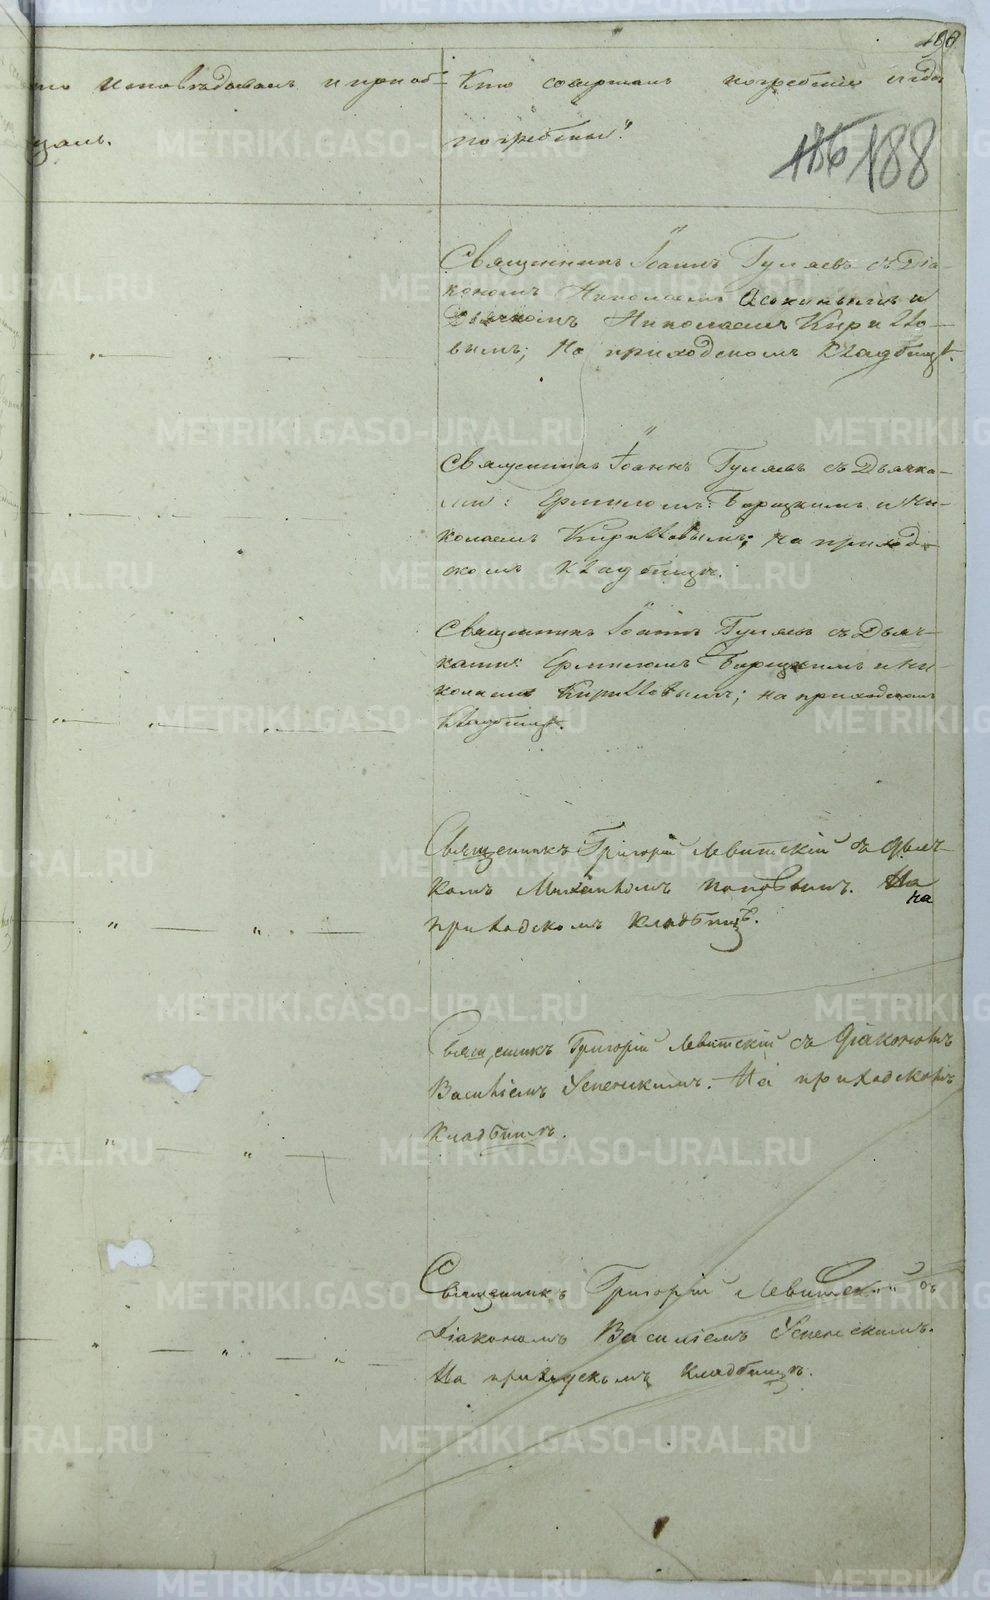 188
Кто исповѣдывалъ и приоб-
щалъ.
Кто совершалъ погребеніе и гдѣ
погребены?
186 188
Священникъ Іоаннъ Гуляевъ съ Діа-
кономъ Николаемъ Асокинымъ и
Дьячкомъ Николаемъ Кирилло-
вымъ; На приходскомъ кладбищѣ.
Священникъ Іоаннъ Гуляевъ съ Дьячка-
ми: Ермиломъ и Ни-
колаемъ Кирилловымъ; на приход-
скомъ кладбищѣ.
Священникъ Іоаннъ Гуляевъ съ Дьяч-
ками: Ермиломъ и Ни-
колаемъ Кирилловымъ; на приходскомъ
кладбищѣ.
Священникъ Григорій Левитскій съ Дьяч-
комъ Михаиломъ Поповымъ. На
на
приходскомъ кладбищѣ.
Священникъ Григорій Левитскій съ Діакономъ
Василіемъ Успенскимъ. На приходскомъ
кладбищѣ.
Священникъ Григорій Левитскій съ
Діакономъ Василіемъ Успенскимъ.
На приходскомъ кладбищѣ.
METRIKI.GASO-URAL.RU